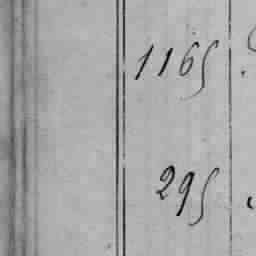 1165
295